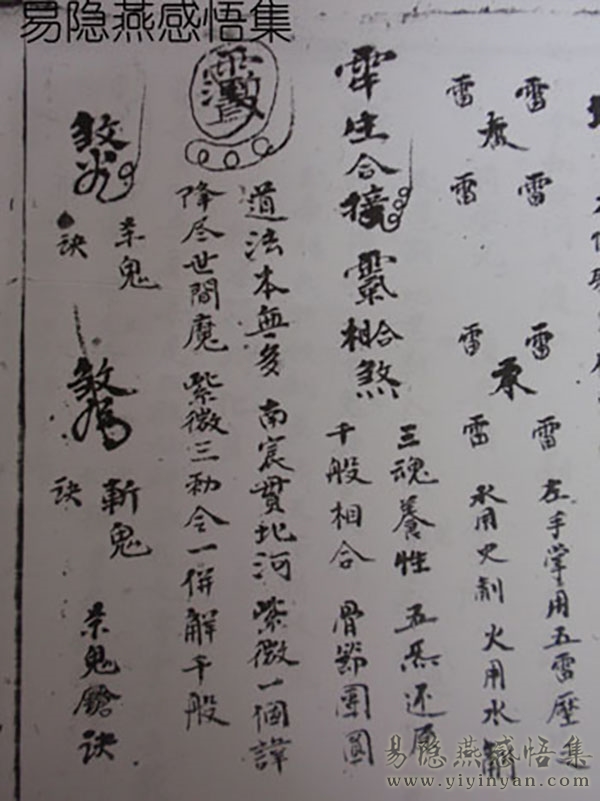 易隐燕感悟集
雷 雷
雷 雷
雷 雷
雷 雷
左手掌用五雷压之
水用火制 火用水制
生合接 靈相合煞
三魂養性 五炁还原
千般相合 骨節團圓
道法本無多 南宸貫北河 紫微一個諱
降尽世間魔 紫微三勅令 一併解千般
斬鬼
訣
鬼
訣
鬼鎗訣
易隐燕感悟集
www.yiyinyan.com